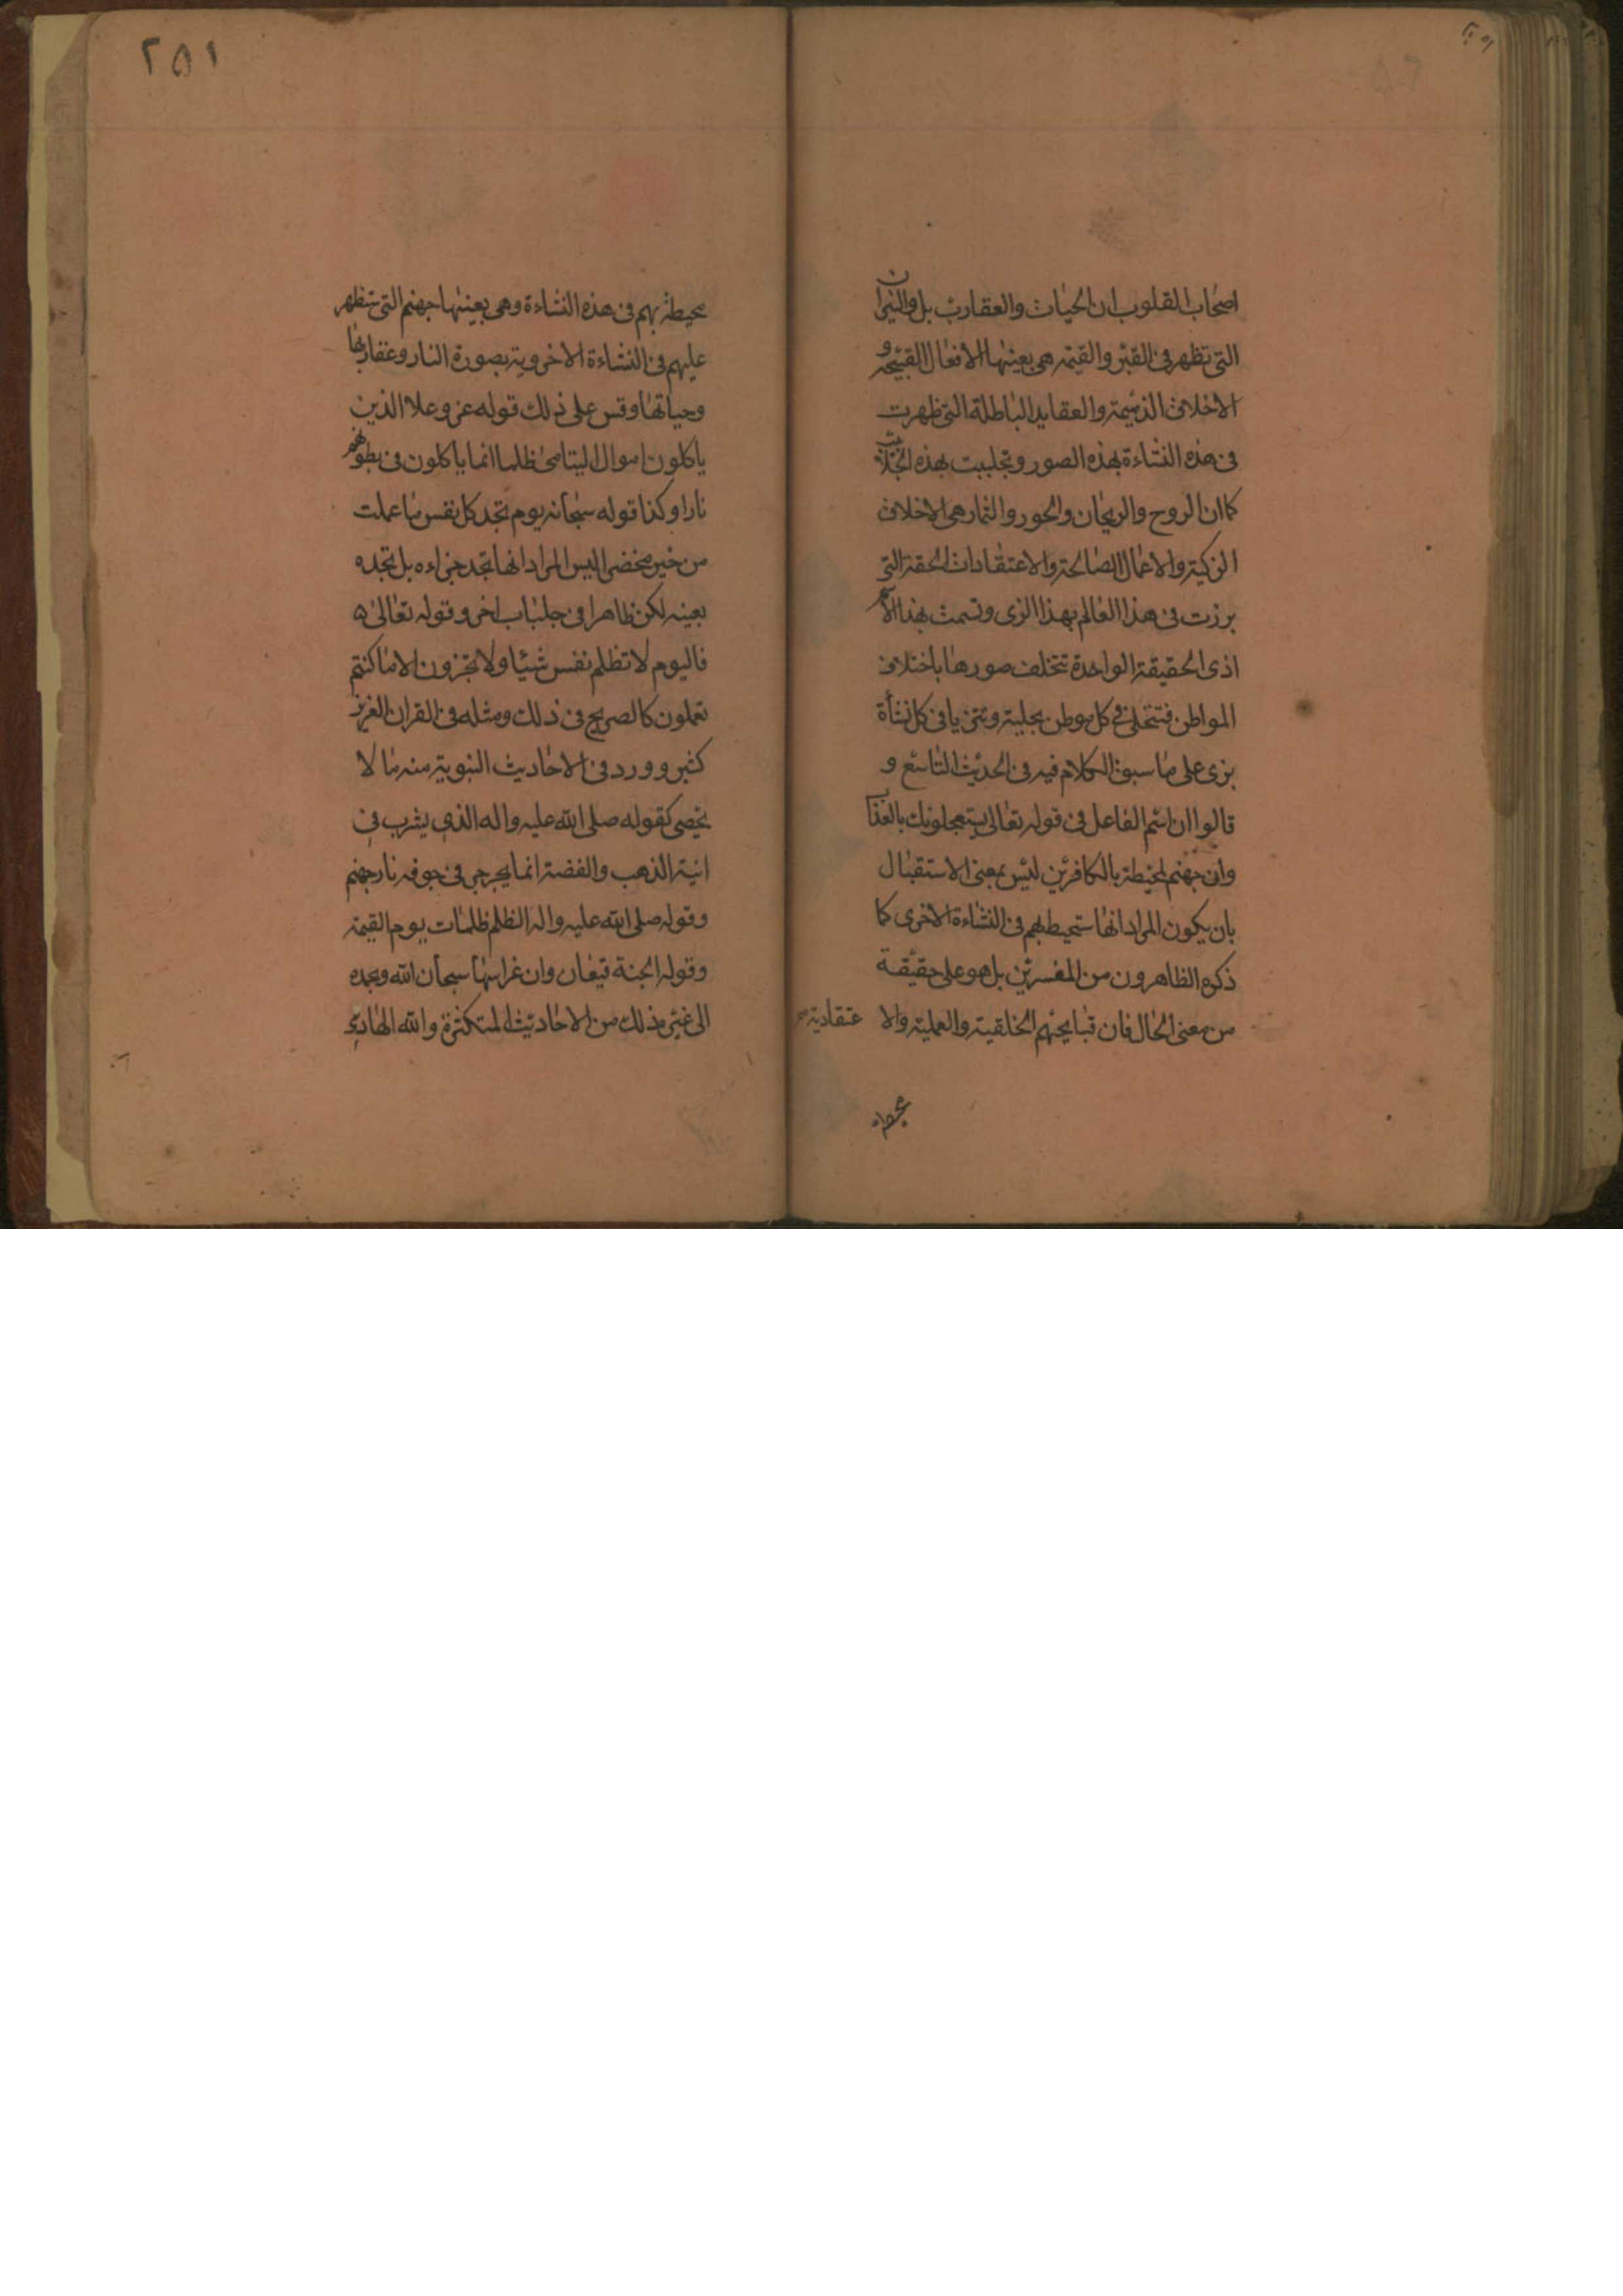 اصحاب القلوب ان الحيات والعقارب بل والنيران
التى تظهر فى القبر والقيمة هى بعينها الافعال القبيحة و
الاخلاق الذميمة والعقايد الباطلة التى ظهرت
فى هذه النشاءة بهذه الصور وتجلببت بهذه الجلابيب
كما ان الروح والريحان والحور والثمار هى الاخلاق
الزكية والاعمال الصالحة والاعتقادات الحقة التى
برزت فى هذا العالم بهذا الزى وتسمت بهذا الاسم
اذ الحقيقة الواحدة تختلف صورها باختلاف
المواطن فتتحلى فى كل موطن بحلية وتتزيا فى كل نشأة
بزى على ما سبق الكلام فيه فى الحديث التاسع و
قالوا ان اسم الفاعل فى قوله تعالى يستعجلونك بالعذاب
وان جهنم لمحيطة بالكافرين ليس بمعنى الاستقبال
بان يكون المراد انها ستحيط بهم فى النشاءة الاخرى كما
ذكره الظاهرون من المفسرين بل هو على حقيقة
من معنى الحال فان قبايحهم الخلقية والعملية والا عتقادية
محيطة بهم فى هذه النشاءة وهى بعينها جهنم التى ستظهر
عليهم فى النشاءة الاخروية بصورة النار وعقاربها
وحياتها وقس على ذلك قوله عز وعلا الذين
ياكلون اموال اليتامى ظلما انما ياكلون فى بطونهم
نارا وكذا قوله سبحانه يوم تجد كل نفس ما عملت
من خير محضرا ليس المراد انها تجد جزاءه بل تجده
بعينه لكن ظاهرا فى جلباب اخر وقوله تعالى
فاليوم لا تظلم نفس شيئا ولا تجزون الا ما كنتم
تعملون كالصريح فى ذلك ومثله فى القران العزيز
كثير وورد فى الاحاديث النبوية منه ما لا
يحصى كقوله صلى الله عليه واله الذى يشرب فى
انية الذهب والفضة انما يجرجر فى جوفه نار جهنم
وقوله صلى الله عليه واله الظلم ظلمات يوم القيمة
وقوله الجنة قيعان وان غراسها سبحان الله وبحمده
الى غير ذلك من الاحاديث المتكثرة والله الهادى
٢٥١